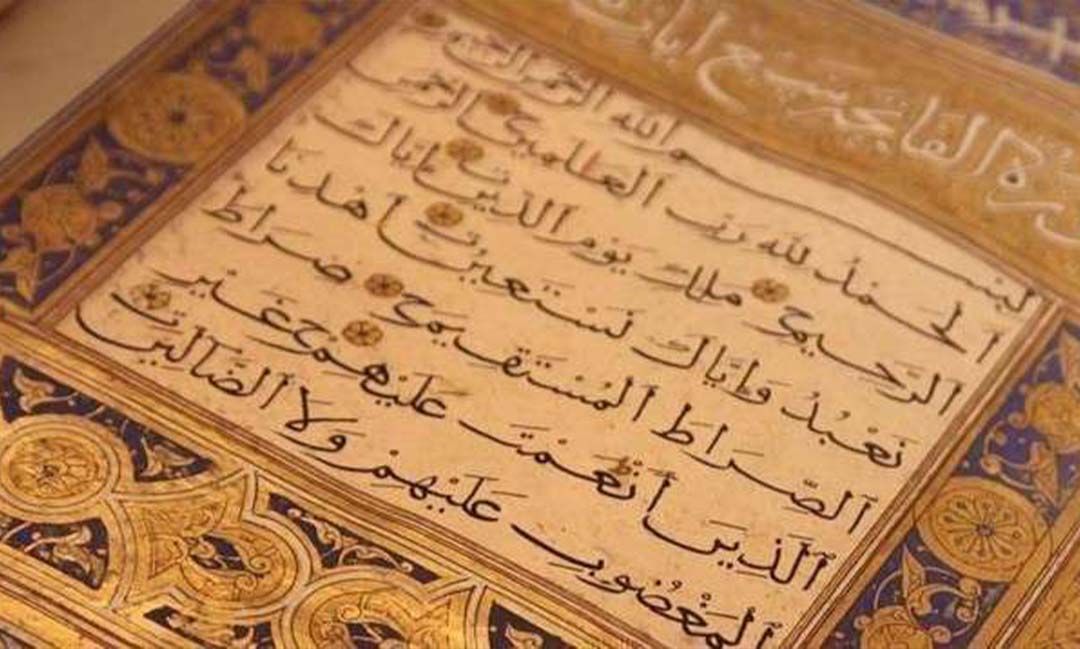 سورة الفاتحة سبع ايات
بسم الله الرحمن الرحيم
الحمد لله رب العالمين الرحمن
الرحيم ملك يوم الدين إياك
نعبد وإياك نستعين اهدنا
الصراط المستقيم صراط
الذين أنعمت عليهم غير
المغضوب عليهم ولا الضالين